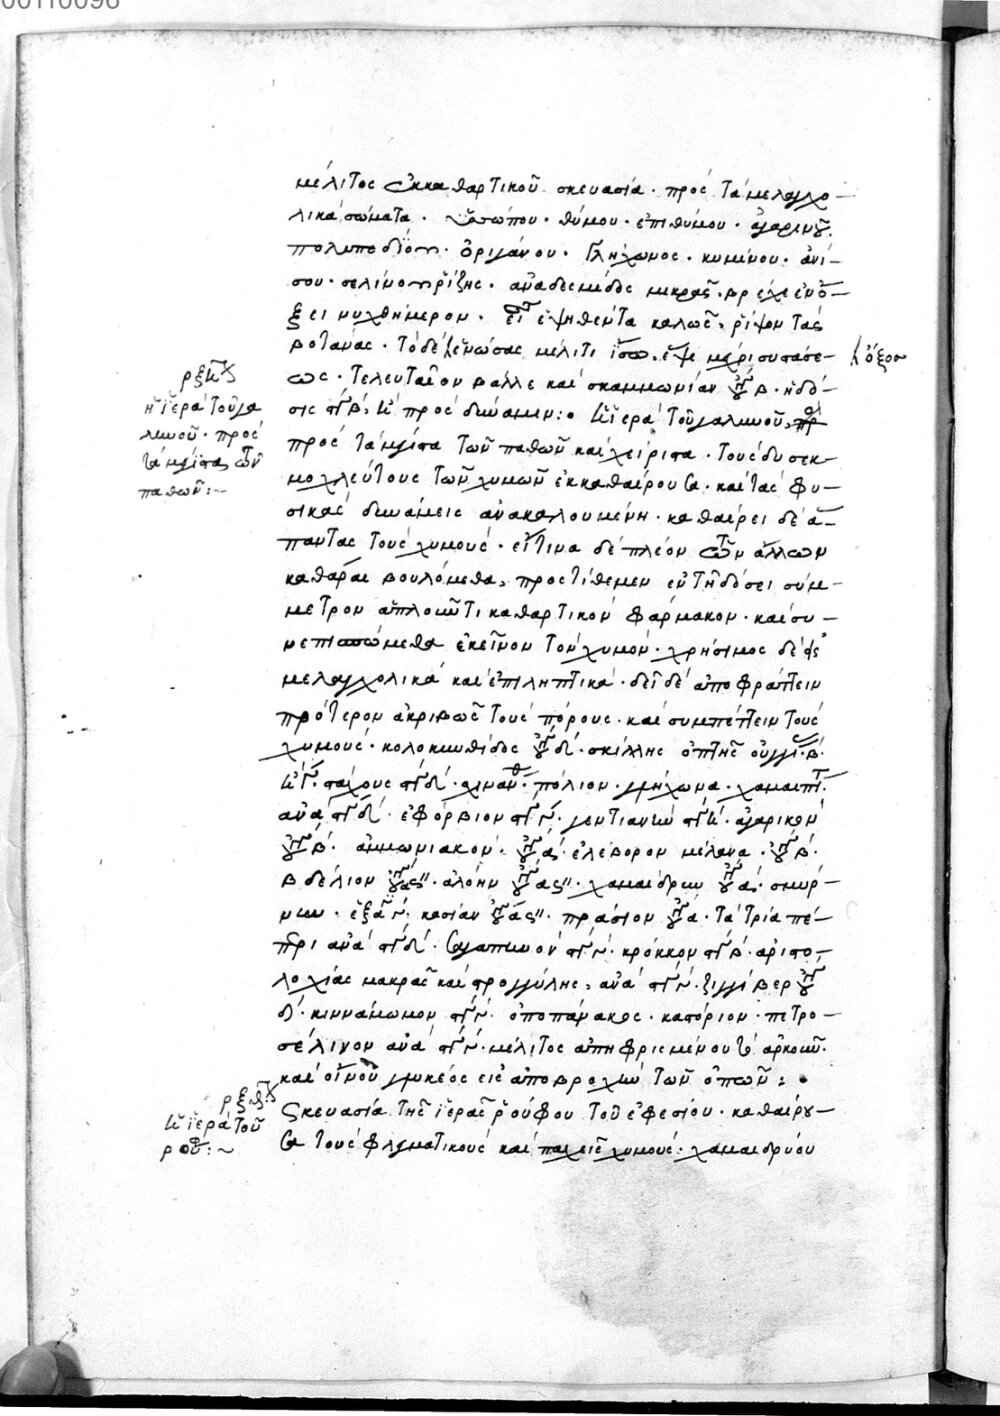 00110098
μέλιτος ἐκκαθαρτικοῦ σκευασία· πρὸς τὰ μελαγχο-
λικὰ σώματα· ὑσσώπου· θύμου· ἐπιθύμου· ἀγαρικοῦ
πολυποδίου· ὀριγάνου· γλήχωνος· κυμίνου· ἀνί-
σου· σελίνου ῥίζης· ἀνὰ δεσμίδος μικρᾶς· βρέχε ἐν ὄ-
ξει νυχθήμερον· εἶτα ἑψηθέντα καλῶς, ῥίψον τὰς
βοτάνας· τὸ δὲ ἑνώσας μέλιτι ἴσῳ, ἕψε μέχρι συστάσε-
ὄξον
ως· τελευταῖον βάλλε καὶ σκαμμωνίαν β· ἡ δό-
σις β, πρὸς δύναμιν:· ἱερὰ τοῦ γαληνοῦ,
ρξ
ἡ ἱερὰ τοῦ γα
ληνοῦ· πρὸς
τὰ μέγιστα τῶν
παθῶν:~
πρὸς τὰ μέγιστα τῶν παθῶν καὶ χείριστα· τοὺς δυσεκ-
μοχλεύτους τῶν χυμῶν ἐκκαθαίρουσα· καὶ τὰς φυ-
σικὰς δυνάμεις ἀνακαλουμένη· καθαίρει δὲ ἅ-
παντας τοὺς χυμούς· εἴ τινα δὲ πλέον τῶν ἄλλων
καθᾶραι βουλόμεθα, προστίθεμεν ἐν τῇ δόσει σύμ-
μετρον ἁπλοῦν τι καθαρτικὸν φάρμακον· καὶ συ-
νεπισπώμεθα ἐκεῖνον τὸν χυμόν· χρήσιμος δὲ
μελαγχολικὰ καὶ ἐπιληπτικά· δεῖ δὲ ἀποφράττειν
πρότερον ἀκριβῶς τοὺς πόρους· καὶ συμπέττειν τοὺς
χυμούς· κολοκυνθίδος δ· σκίλλης ὀπτῆς οὐγγί· β·
στάχους δ· πόλιον· γλήχωνα· χαμαιπί
ἀνὰ δ· εὐφόρβιον γεντιανὴν ἀγαρικὸν
β· ἀμμωνιακόν· α· ἐλέβορον μέλανα· β·
βδέλιον ἀλόην χαμαίδρυν α· σμύρ-
νην· κασίαν πράσιον α· τὰ τρία πέ-
περι ἀνὰ δ· κρόκκον β· ἀριστο-
λοχίας μακρᾶς καὶ στρογγύλης, ἀνὰ ζιγγίβερ
δ· κιννάμωμον ὀποπάνακος· καστόριον· πετρο-
σέλινον ἀνὰ μέλιτος ἀπηφρισμένου τὸ ἀρκοῦν·
καὶ οἴνου γλυκέος εἰς ἀποβροχὴν τῶν ὀπῶν:·
ρξ
ἱερὰ τοῦ
ρού:~
Σκευασία τῆς ἱερᾶς ῥούφου τοῦ ἐφεσίου· καθαίρου-
σα τοὺς φλεγματικοὺς καὶ παχεῖς χυμούς· χαμαιδρύου